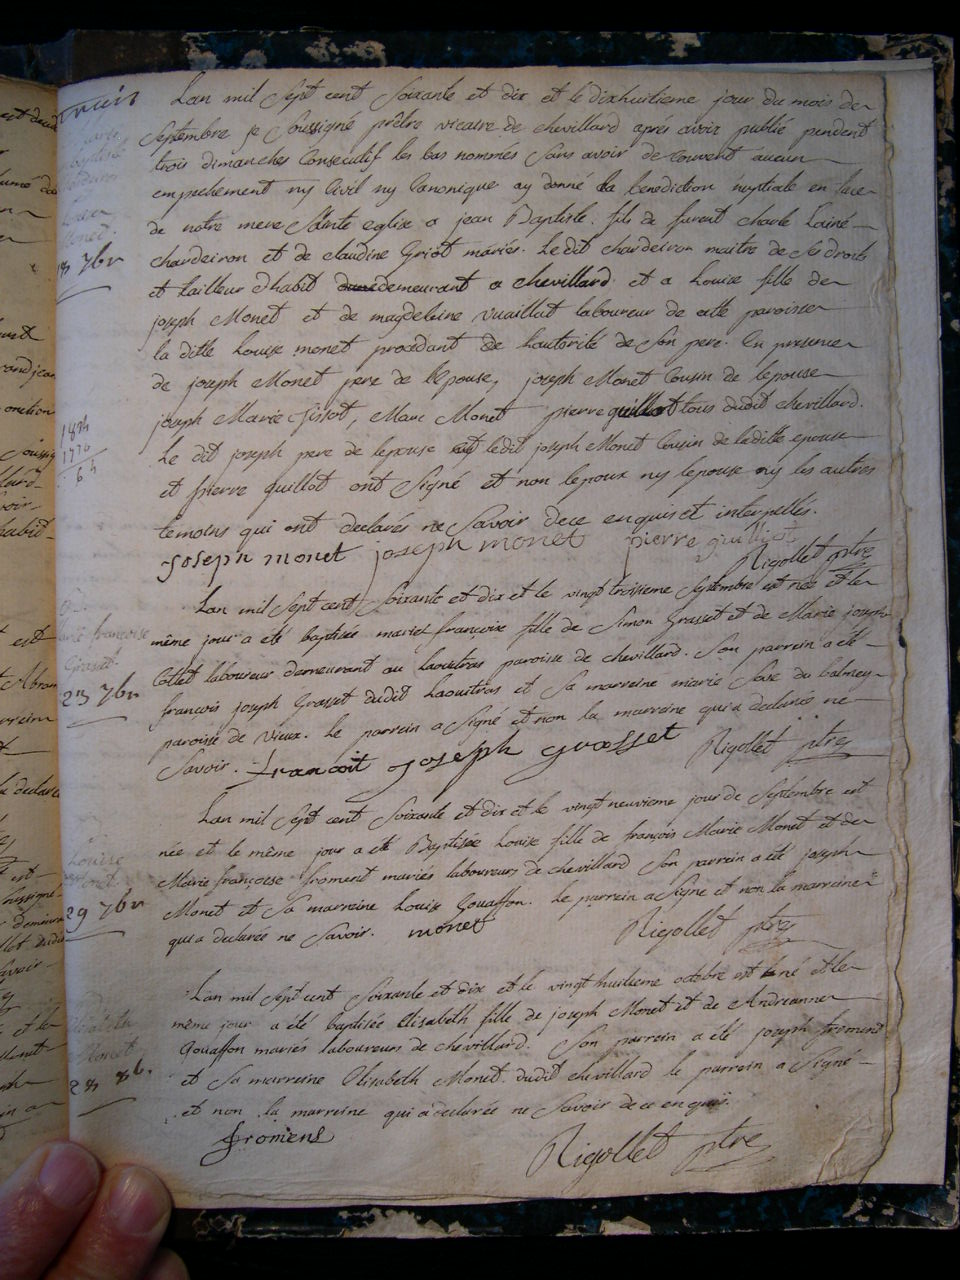 Lan mil Sept cent Soixante et dix et le dixhuitieme jour du mois de
Septembre je Soussigné prêtre vicaire de chevillard aprés avoir publié pendent
trois dimanches Consecutif les bas nommés Sans avoir decouvert aucun
empechement ny Civil ny Canonique ay donné la benediction nuptiale en face
de notre mere Sainte eglise a jean Baptiste fils de furent charle Lainé
chardeiron et de claudine Griot mariés. Le dit chardeiron maitre de Ses droits
et tailleur dhabit demeurant a chevillard et a Louise fille de
joseph Monet et de magdeleine vuaillat laboureur de cette paroisse
la ditte Louise monet procedant de Lautorité de Son pere. En presence
de joseph Monet pere de lEpouse, joseph Monet Cousin de lepouse
joseph Marie Marc Monet pierre guillot tous dudit chevillard.
Le dit joseph pere de lepouse ledit joseph Monet Cousin de laditte epouse
et pierre guillot ont Signé et non lepoux ny lepouse ny les autres
temoins qui ont declarés ne Savoir dece enquis et interpellés.
joseph monet joseph monet pierre guilliot
Rigollet ptre
18 7br
1834
1770
64
Lan mil Sept cent Soixante et dix et le vingt troisieme Septembre est née et le
même jour a eté baptisée marie françoise fille de Simon Grasset et de Marie joseph
Collet laboureur demeurant au Laoutras paroisse de chevillard. Son parrein a eté
françois joseph Grasset dudit Laoutras et Sa marreine marie du balmey
paroisse de Vieux. Le parrein a Signé et non la marreine qui a declarée ne
Savoir. francoit joseph grasset Rigollet ptre
françoise
Grasset
23 7br
Lan mil Sept cent Soixante et dix et le vingt neuvieme jour de Septembre est
née et le même jour a eté Baptisée Louise fille de françois Marie Monet et de
Marie françoise froment mariés laboureurs de chevillard Son parrein a eté joseph
Monet et Sa marreine Louise Gouaffon. Le parrein a Signé et non la marreine
qui a declarée ne Savoir. monet Rigollet ptre
Louise
Monet
29 7br
Lan mil Sept cent Soixante et dix et le vingt huitieme octobre est né et le
même jour a été baptisée Elisabeth fille de joseph Monet et de Andreanne
Gouaffon mariés laboureurs de chevillard. Son parrein a eté joseph froment
et Sa marreine Elisabeth Monet dudit chevillard le parrein a Signé
et non la marreine qui a declarée ne Savoir dece enquis
froment Rigollet ptre
Monet
28 8b.